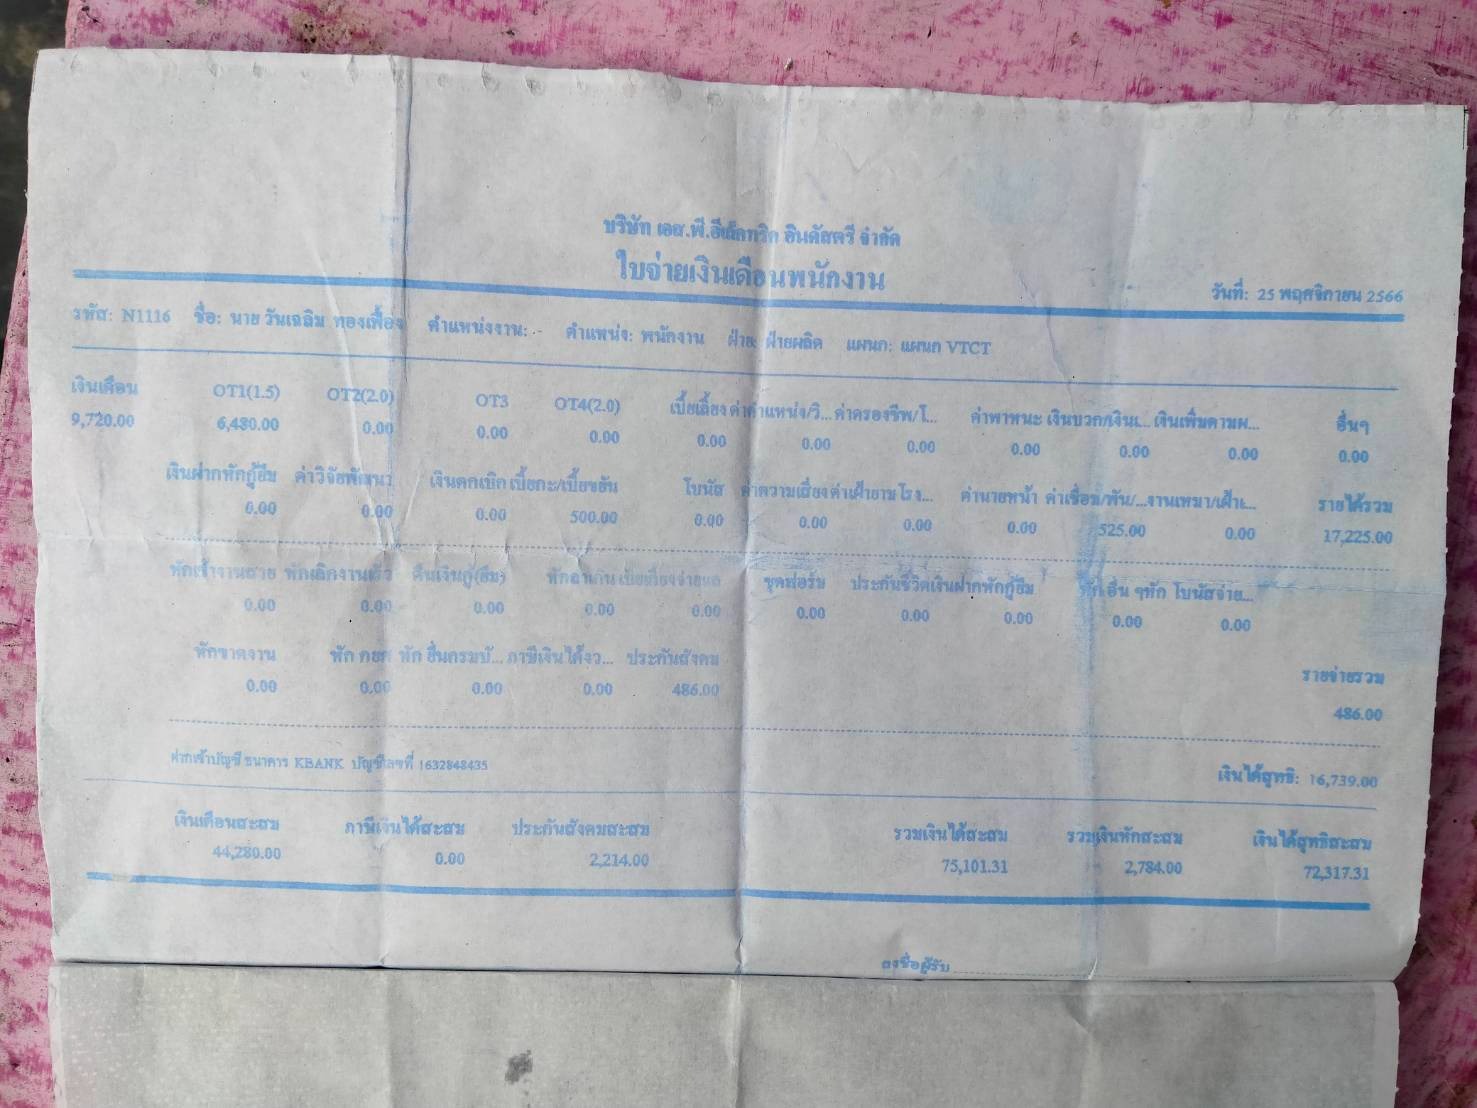 บริษัท เอส.พี.อีเล็กทริค อินดัสตรี จำกัด
ใบจ่ายเงินเดือนพนักงาน
วันที่: 25 พฤศจิกายน 2566
รหัส: N1116 ชื่อ: นาย วันเฉลิม ทองเฟื้อง ตำแหน่งงาน: - ตำแหน่ง: พนักงาน ฝ่าย: ฝ่ายผลิต แผนก: แผนก VTCT
เงินเดือน OT1(1.5) OT2(2.0) OT3 OT4(2.0) เบี้ยเลี้ยง ค่าตำแหน่ง/วิ... ค่าครองชีพ/โ... ค่าพาหนะ เงินบวก/เงินเ... เงินเพิ่มตามผ... อื่นๆ
9,720.00 6,480.00 0.00 0.00 0.00 0.00 0.00 0.00 0.00 0.00 0.00 0.00
เงินฝากหักกู้ยืม ค่าวิจัยพัฒนา เงินตกเบิก เบี้ยกะ/เบี้ยขยัน โบนัส ค่าความเสี่ยง ค่าเฝ้ายามโรง... ค่านายหน้า ค่าเชื่อม/พัน/... งานเหมา/เฝ้าเ... รายได้รวม
0.00 0.00 0.00 500.00 0.00 0.00 0.00 0.00 525.00 0.00 17,225.00
หักเข้างานสาย หักเลิกงานเร็ว คืนเงินกู้(ยืม) หักลาเกิน เบี้ยเลี้ยงจ่ายแล ชุดฟอร์ม ประกันชีวิต เงินฝากหักกู้ยืม หัก อื่น ๆ หัก โบนัสจ่าย...
0.00 0.00 0.00 0.00 0.00 0.00 0.00 0.00 0.00 0.00
หักขาดงาน หัก กยศ หัก ยื่นกรมบั... ภาษีเงินได้งว... ประกันสังคม รายจ่ายรวม
0.00 0.00 0.00 0.00 486.00 486.00
ฝากเข้าบัญชี ธนาคาร KBANK บัญชีเลขที่ 1632848435 เงินได้สุทธิ: 16,739.00
เงินเดือนสะสม ภาษีเงินได้สะสม ประกันสังคมสะสม รวมเงินได้สะสม รวมเงินหักสะสม เงินได้สุทธิสะสม
44,280.00 0.00 2,214.00 75,101.31 2,784.00 72,317.31
ลงชื่อผู้รับ